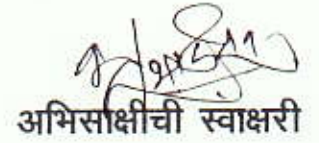 अभिसाक्षीची स्वाक्षरी